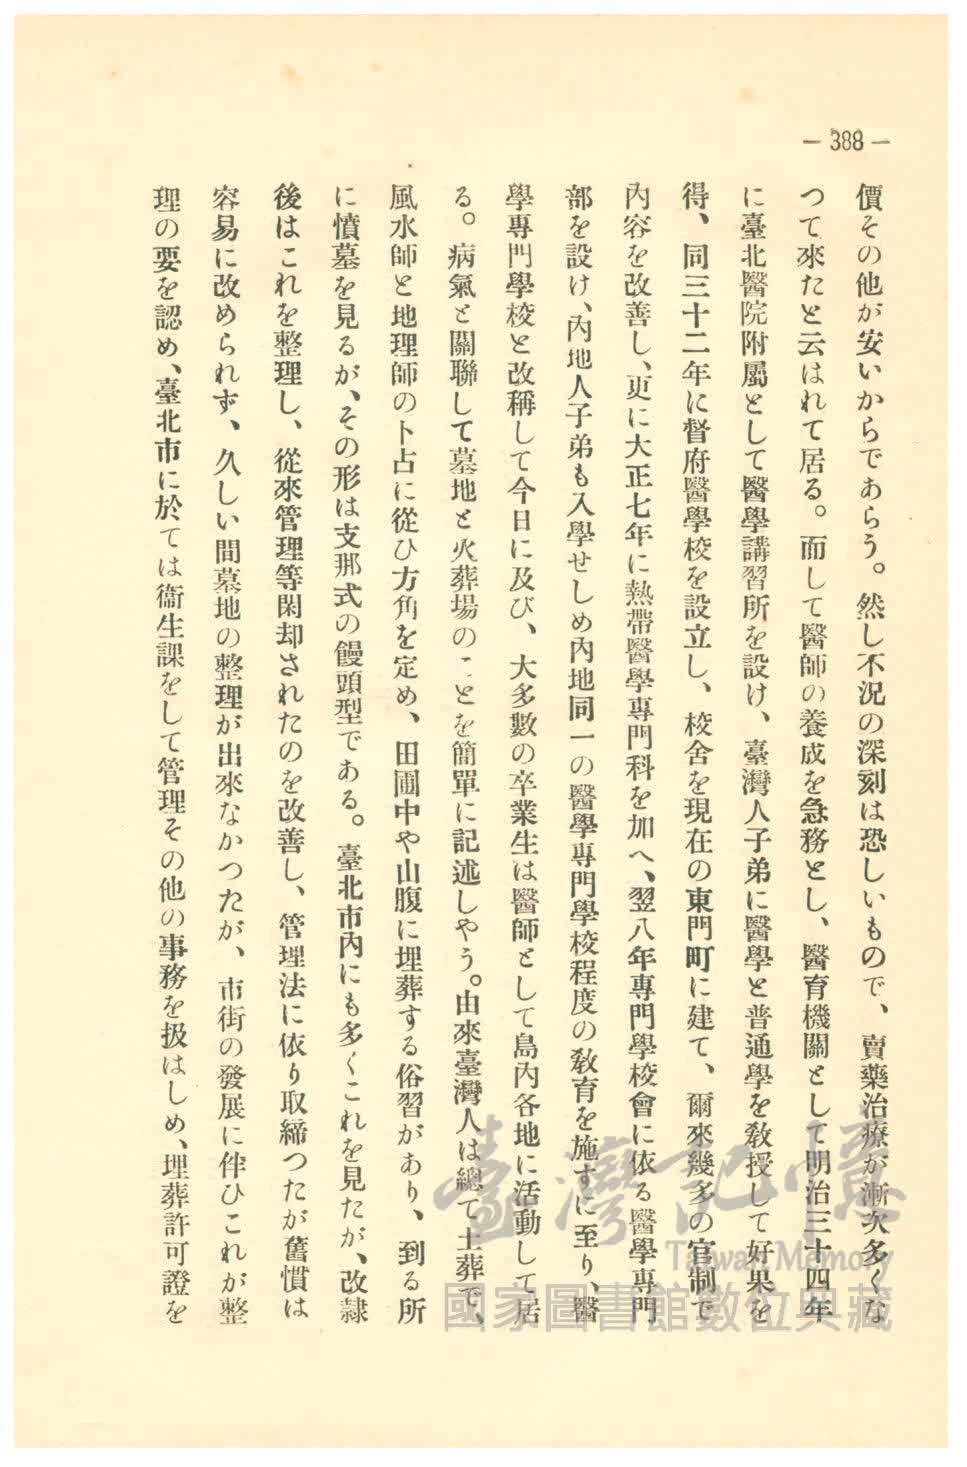 — 388 —
價その他が安いからであらう。然し不況の深刻は恐しいもので、賣藥治療が漸次多くな
つて來たと云はれて居る。而して醫師の養成を急務とし、醫育機關として明治三十四年
に臺北醫院附屬として醫學講習所を設け、臺灣人子弟に醫學と普通學を敎授して好果を
得、同三十二年に督府醫學校を設立し、校舍を現在の東門町に建て、爾來幾多の官制で
內容を改善し、更に大正七年に熱帶醫學專門科を加へ、翌八年專門學校會に依る醫學專門
部を設け、內地人子弟も入學せしめ內地同一の醫學專門學校程度の敎育を施すに至り、醫
學專門學校と改稱して今日に及び、大多數の卒業生は醫師として島內各地に活動して居
る。病氣と關聯して墓地と火葬場のことを簡單に記述しやう。由來臺灣人は總て土葬で、
風水師と地理師の卜占に從ひ方角を定め、田圃中や山腹に埋葬する俗習があり、到る所
に憤墓を見るが、その形は支那式の饅頭型である。臺北市內にも多くこれを見たが、改隷
後はこれを整理し、從來管理等閑却されたのを改善し、管理法に依り取締つたが舊慣は
容易に改められず、久しい間墓地の整理が出來なかつたが、市街の發展に伴ひこれが整
理の要を認め、臺北市に於ては衞生課をして管理その他の事務を扱はしめ、埋葬許可證を
臺灣記憶
Taiwan Memory
國家圖書館數位典藏